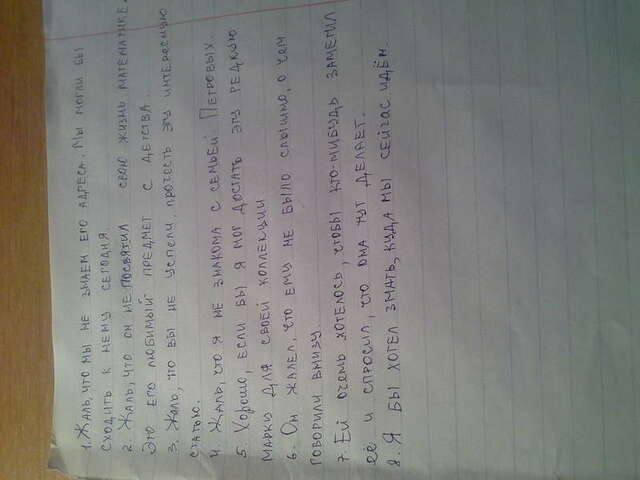 1. Жаль, что мы не знаем его адреса. Мы могли бы
сходить к нему сегодня.
2. Жаль, что он не посвятил свою жизнь математике.
Это его любимый предмет с детства.
3. Жаль, что вы не успели прочесть эту интересную
статью.
4. Жаль, что я не знакома с семьёй Петровых.
5. Хорошо, если бы я мог достать эту редкую
марку для своей коллекции
6. Он жалел, что ему не было слышно, о чем
говорили внизу.
7. Ей очень хотелось, чтобы кто-нибудь заметил
её и спросил, что она тут делает.
8. Я бы хотел знать, куда мы сейчас идём